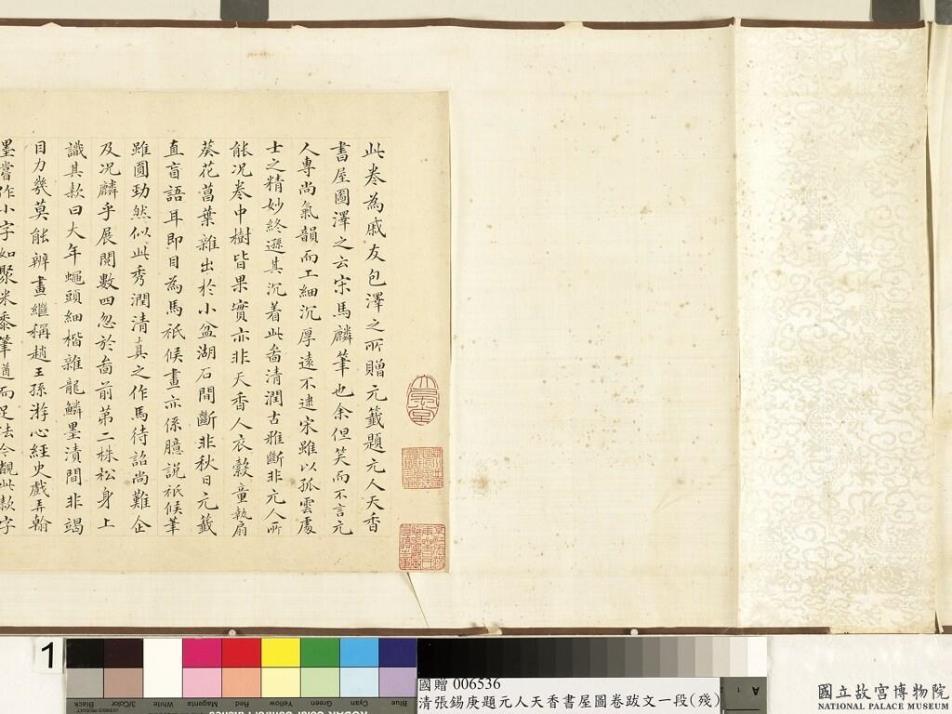 此卷為戚友包澤之所贈元籤題元人天香
書屋圖澤之云宋馬麟筆也余但笑而不言元
人專尚氣韻而工細沉厚遠不逮宋雖以孤雲處
士之精妙終遜其沉着此畵清潤古雅斷非元人所
能况卷中樹皆果實亦非天香人衣縠童執扇
葵花菖葉雜出於小盆湖石間斷非秋日元籤
直盲語耳即目為馬祇候畫亦係臆説祇候筆
雖圓勁然似此秀潤清真之作馬待詔尚難企
及况麟乎展閱數四忽於畵前第二株松身上
識其款曰大年蠅頭細楷雜龍鱗墨漬間非竭
目力幾莫能辨畫繼稱趙王孫游心經史戲弄翰
墨嘗作小字如聚米黍筆遒而足法今觀此款字
1
國贈 006536
清張錫庚題元人天香書屋圖卷跋文一段(殘)
Black
3/Color
White
Magenta
Red
Yellow
Green
Cyan
Blue
A
1
國立故宮博物院
NATIONAL PALACE MUSEUM